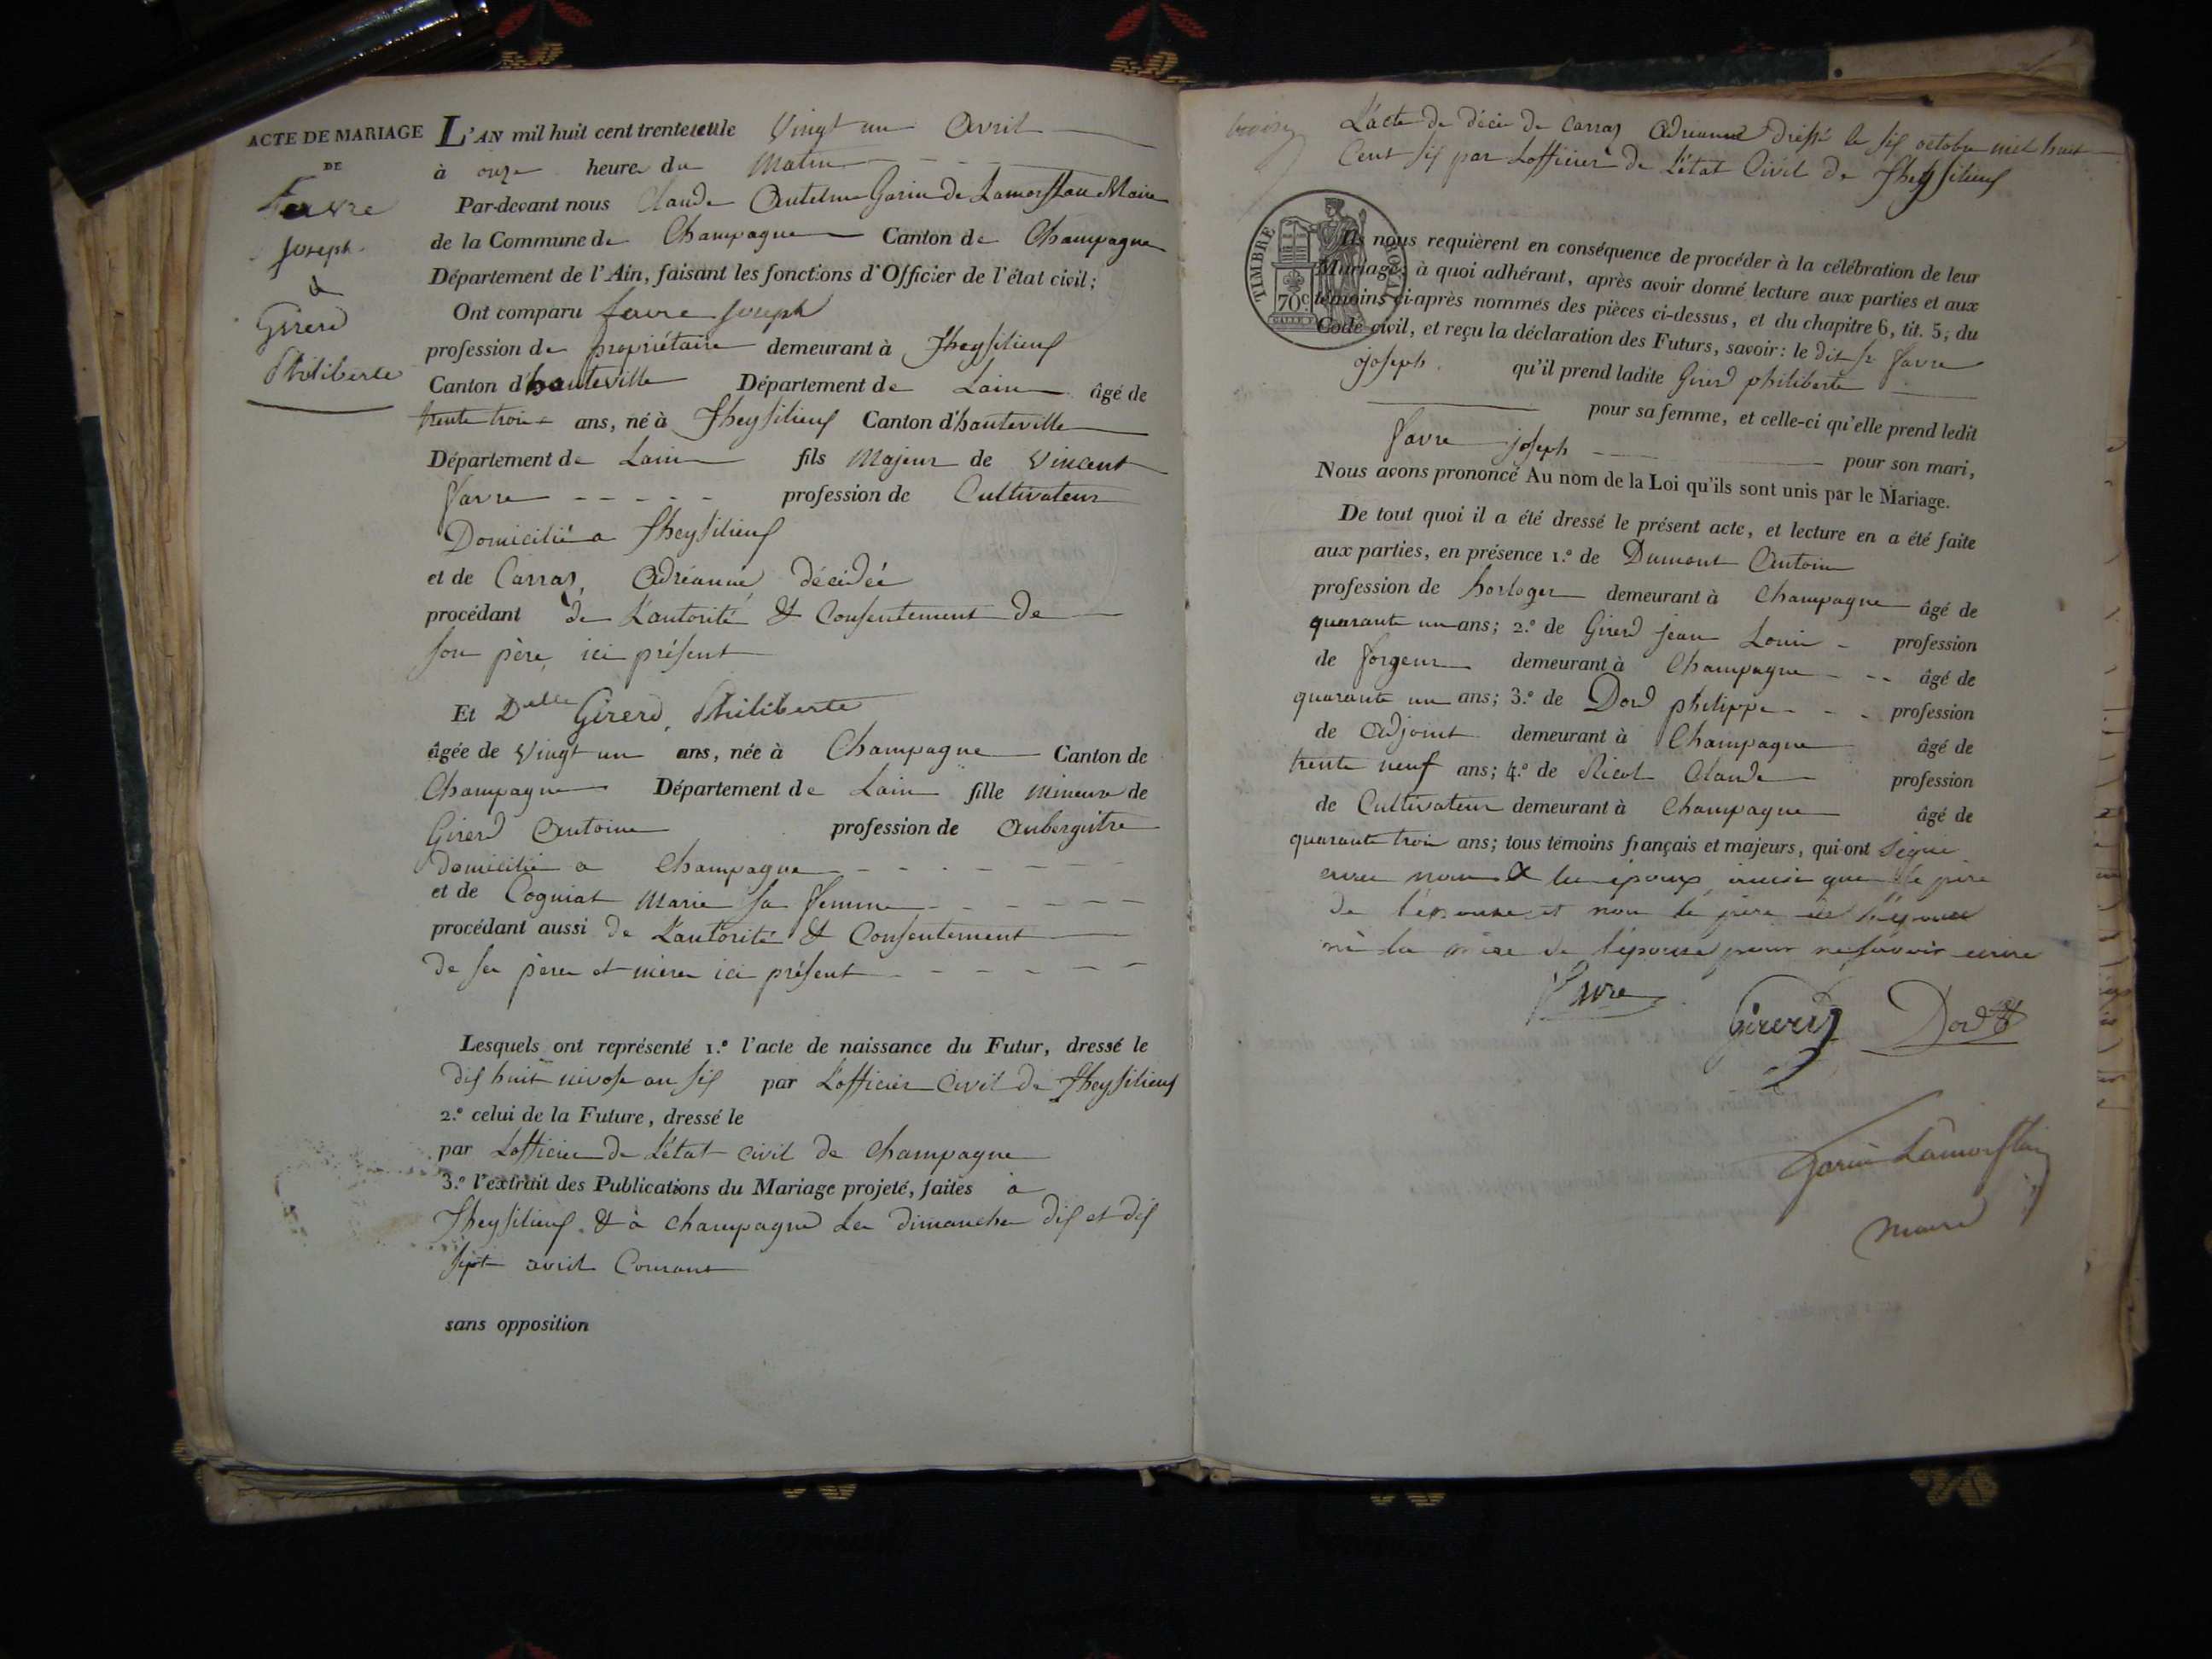 ACTE DE MARIAGE
DE
Favre
Joseph
&
Girerd
Philiberte
L'AN mil huit cent trente et un le Vingt un Avril
à onze heure du Matin
Par-devant nous Claude Antelme Garin de Lamorflan Maire
de la Commune de Champagne Canton de Champagne
Département de l'Ain, faisant les fonctions d'Officier de l'état civil;
Ont comparu favre joseph
profession de propriétaire demeurant à
Canton d'hauteville Département de Lain âgé de
trente trois ans, né à Canton d'hauteville
Département de Lain fils Majeur de Vincent
favre profession de Cultivateur
Domicilié a
et de Carraz Adrianne décédée
procédant de L'autorité & Consentement de
son père ici présent
Et Delle Girerd, Philiberte
âgée de Vingt un ans, née à Champagne Canton de
Champagne Département de Lain fille mineure de
Girerd Antoine profession de Aubergiste
Domicilié a Champagne
et de Cogniat Marie sa femme
procédant aussi de L'autorité & Consentement
de ses père et mère ici présent
Lesquels ont représenté 1.º l'acte de naissance du Futur, dressé le
dix huit nivose an six par L'officier Civil de
2.º celui de la Future, dressé le
par L'officier de L'état civil de Champagne
3.º l'extrait des Publications du Mariage projeté, faites à
& à Champagne les dimanches dix et dix
sept avril Courant
sans opposition
L'acte de décès de Carraz Adrianne dressé le six octobre mil huit
Cent six par L'officier de L'état Civil de
TIMBRE ROYAL
70c
Ils nous requièrent en conséquence de procéder à la célébration de leur
Mariage; à quoi adhérant, après avoir donné lecture aux parties et aux
témoins ci-après nommés des pièces ci-dessus, et du chapitre 6, tit. 5, du
Code civil, et reçu la déclaration des Futurs, savoir: le dit sr favre
joseph qu'il prend ladite Girerd philiberte
pour sa femme, et celle-ci qu'elle prend ledit
favre joseph pour son mari,
Nous avons prononcé Au nom de la Loi qu'ils sont unis par le Mariage.
De tout quoi il a été dressé le présent acte, et lecture en a été faite
aux parties, en présence 1.º de Dumont Antoine
profession de horloger demeurant à Champagne âgé de
quarante un ans; 2.º de Girerd jean Louis profession
de forgeur demeurant à Champagne âgé de
quarante un ans; 3.º de Dord philippe profession
de Adjoint demeurant à Champagne âgé de
trente neuf ans; 4.º de Nicol Claude profession
de Cultivateur demeurant à Champagne âgé de
quarante trois ans; tous témoins français et majeurs, qui ont signé
avec nous & les époux ainsi que le père
de l'épouse et non le père de l'époux
ni la mère de l'épouse pour ne savoir ecrire
Favre
Girerd
Dord
Garin Lamorflan
maire